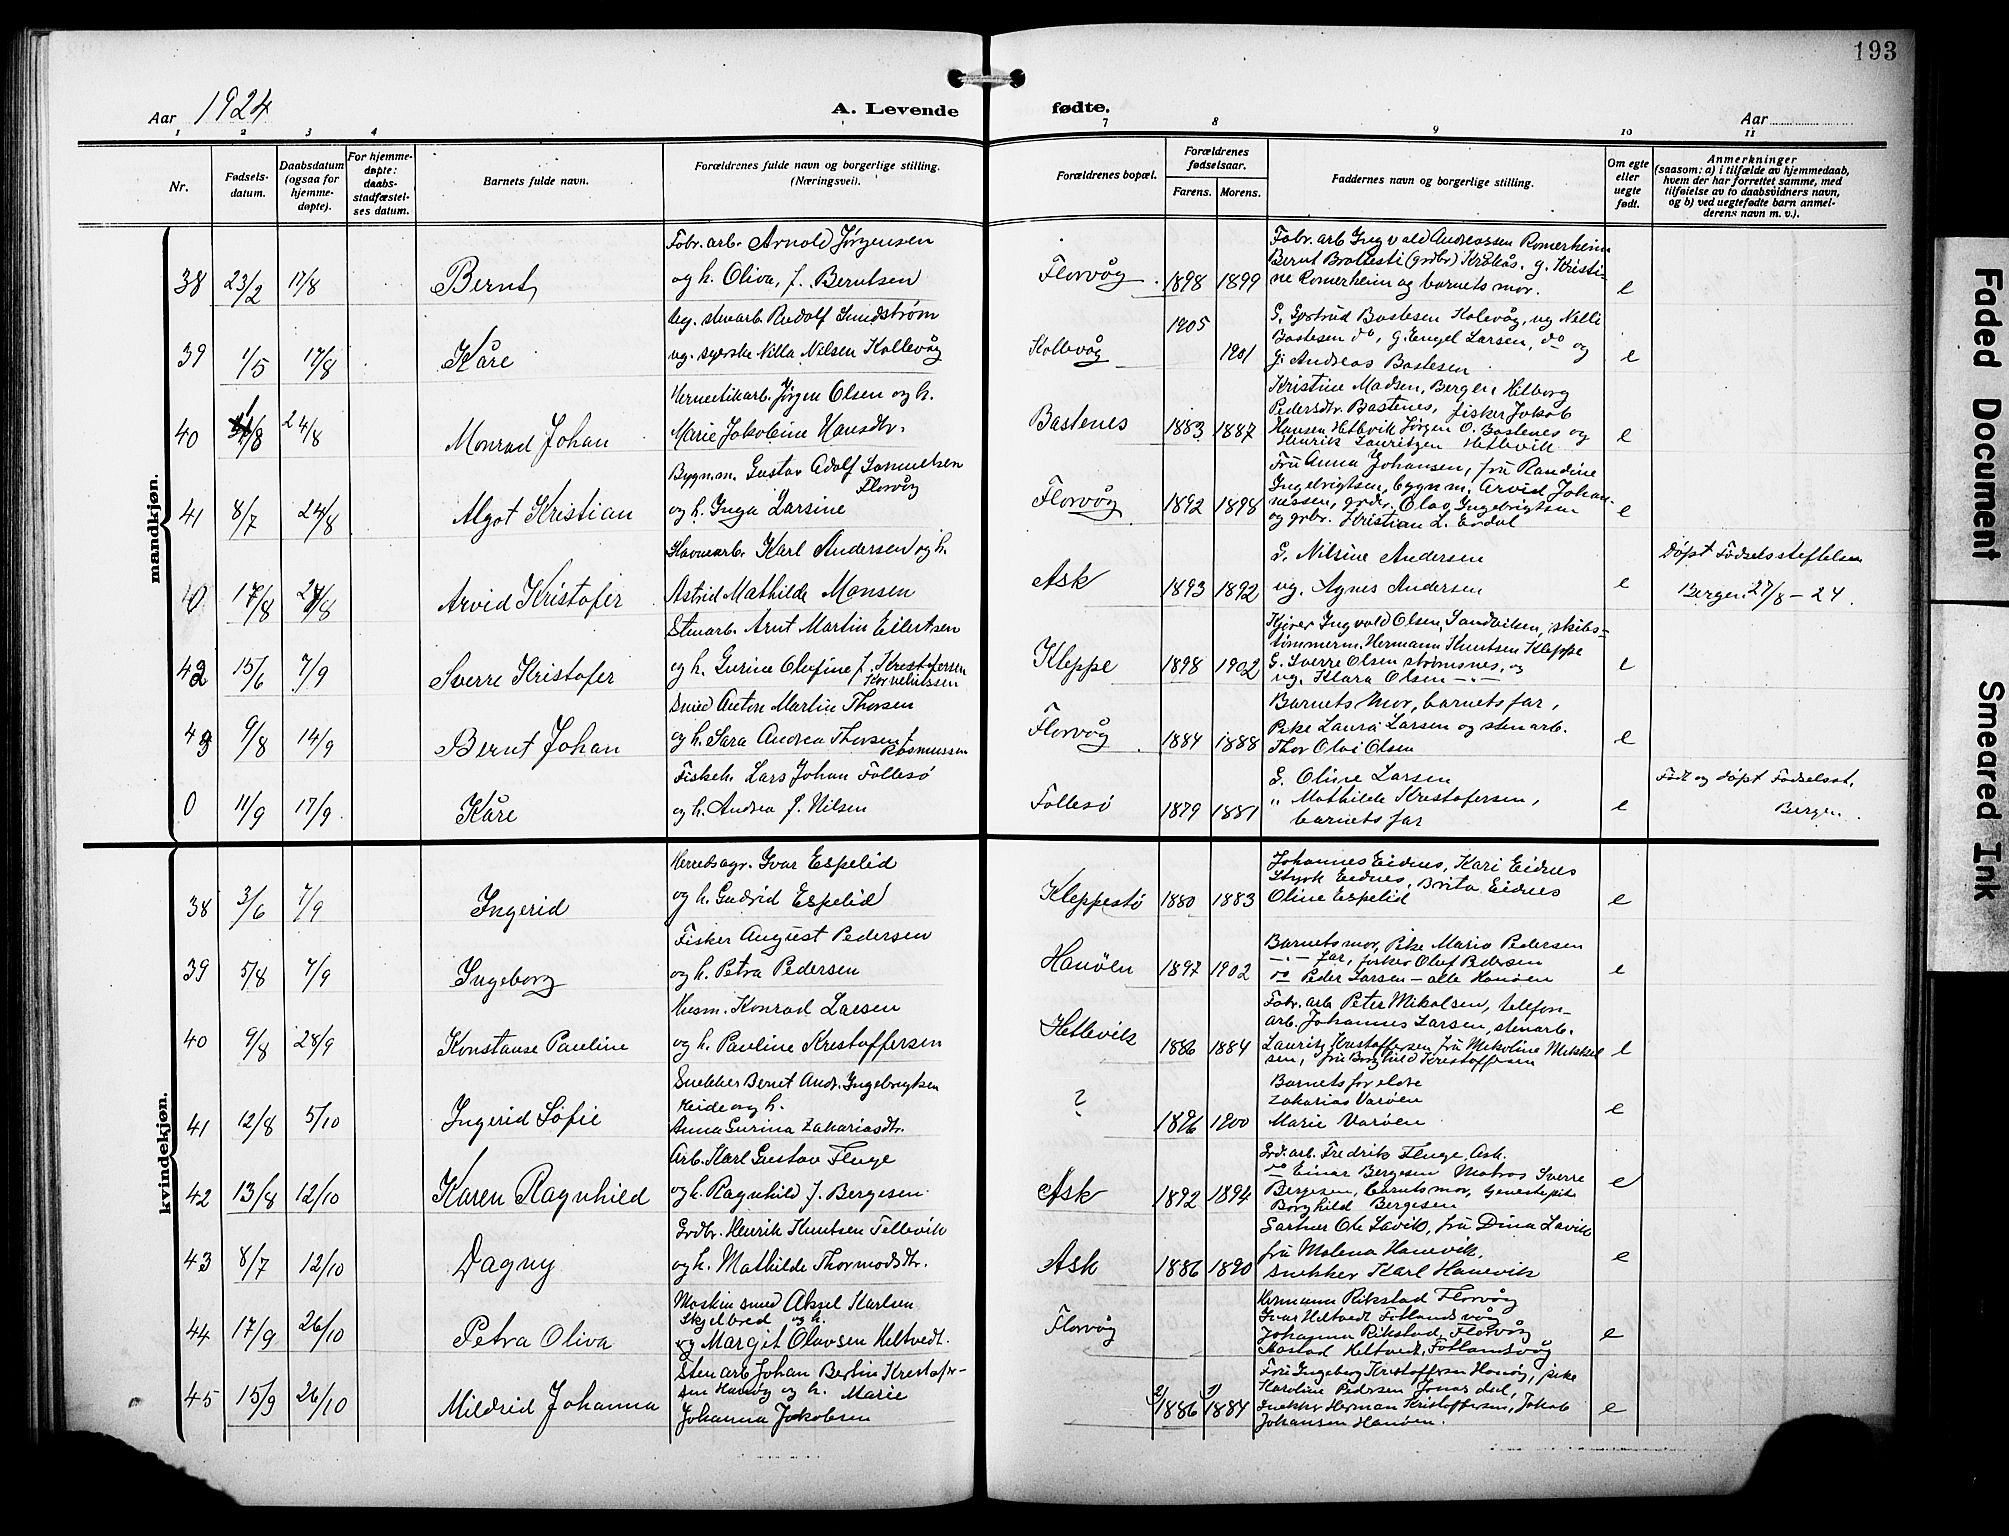 193
Aar 1924
A. Levende
fødte.
Aar
1 2 3 4 7 8 9 10 11
Nr.
Fødsels-
datum.
Daabsdatum
(ogsaa for
hjemme-
døpte).
For hjemme-
døpte:
daabs-
stadfæstel-
ses datum.
Barnets fulde navn.
Forældrenes fulde navn og borgerlige stilling.
(Næringsvei).
Forældrenes bopæl.
Forældrenes
fødselsaar.
Farens. Morens.
Faddernes navn og borgerlige stilling.
Om egte
eller
uegte
født.
Anmerkninger
(saasom: a) i tilfælde av hjemmedaab,
hvem der har forrettet samme, med
tilføielse av to daabsvidners navn,
og b) ved uegtefødte barn anmel-
derens navn m. v.).
mandkjøn.
38 23/2 17/8 Bernt
Fabr. arb. Arnold Jørgensen
og h. Oliva, f. Berntsen
Florvåg 1898 1899
Fabr. arb Ingvald Andreassen Romerheim
Bernt Brattesti (grdbr) Kråkås. g. Kristi-
ne Romerheim og barnets mor.
e
39 1/5 17/8 Kåre
Ug. stenarb. Rudolf Sundstrøm
ug. syerske Nilla Nilsen Kollevåg
Kollevåg 1905 1901
G. Gertrud Bastesen Kolevåg, ug Nelli
Bastesen do, g. Engel Larsen, do og
G. Andreas Bastesen
e
40 /8 24/8 Monrad Johan
Hermetikarb. Jørgen Olsen og h.
Marie Jakobine Hansdtr.
Bastenes 1883 1887
Kristine Madsen, Bergen Hilborg
Pedersdtr. Bastenes, fisker Jakob
Hansen Hetlevik Jørgen O. Bastenes og
Henrik Lauritzen Hetlevik
e
41 8/7 24/8 Algot Kristian
Bygn.m. Gustav Adolf Samuelsen
Florvåg
og h. Inga Larsine
Florvåg 1892 1898
Fru Anna Johansen, fru Randine
Ingebrigtsen, bygn m. Arvid Johan-
nessen, grdr. Olav Ingebrigtsen
og grbr. Kristian L. Erdal
e
0 17/8 27/8 Arvid Kristofer
Havnearb. Karl Andersen og h.
Astrid Mathilde Monsen
Ask 1893 1892
G. Nilsine Andersen
ug. Agnes Andersen
e
Døpt Fødselsstiftelsen
Bergen 27/8 - 24.
42 15/6 7/9 Sverre Kristofer
Stenarb. Arnt Martin Eilertsen
og h. Gurine Olufine f. Kristofersen
Korneliussen
Kleppe 1898 1902
Kjører Ingvald Olsen, Sandviken, skibs-
tømmerm. Hermann Knutsen Kleppe
G. Sverre Olsen strømsnes, og
ug. Klara Olsen -"-
e
43 9/8 14/9 Bernt Johan
Smed Anton Martin Thorsen
og h. Sara Andrea Thorsen f.
Rasmussen
Florvåg 1884 1888
Barnets mor, barnets far,
Pike Laura Larsen og stenarb.
Thor Olai Olsen
e
0 11/9 17/9 Kåre
Fiskeh. Lars Johan Follesø
og h. Andrea f. Nilsen
Follesø 1879 1881
G. Oline Larsen
" Mathilde Kristofersen,
barnets far
e
Født og døpt Fødselsst.
Bergen.
kvindekjøn.
38 3/6 7/9 Ingerid
Herredsagr. Ivar Espelid
og h. Gudrid Espelid
Kleppestø 1880 1883
Johannes Eidnes, Kari Eidnes
Styrk Eidnes, Brita Eidnes
Oline Espelid
e
39 5/8 7/9 Ingeborg
Fisker August Pedersen
og h. Petra Pedersen
Hanøen 1897 1902
Barnets mor, Pike Maria Pedersen
-"- far, fisker Oluf Pedersen
do Peder Larsen - alle Hanøen
e
40 9/8 28/9 Konstanse Pauline
Husm. Konrad Larsen
og h. Pauline Kristoffersen
Hetlevik 1886 1884
Fabr. arb Peter Mikalsen, telefon-
arb. Johannes Larsen, stenarb.
Lauritz Kristoffersen fru Mikoline Mikkel-
sen, fru Borghild Kristoffersen
e
41 12/8 5/10 Ingerid Sofie
Snekker Bernt Andr. Ingebrigtsen
Heide og h.
Anna Gurina Zakariasdtr.
? 1896 1900
Barnets foreldre
Zakarias Varøen
Marie Varøen
e
42 13/8 12/10 Karen Ragnhild
Arb. Karl Gustav Fluge
og h. Ragnhild f. Bergesen
Ask 1892 1894
Grd. arb. Fredrik Fluge, Ask.
do Einar Bergesen Matros Sverre
Bergesen, barnets mor, tjenestepike
Borghild Bergesen
e
43 8/7 12/10 Dagny
Grdbr. Henrik Knutsen Tellevik
og h. Mathilde Thormodsdtr.
Ask 1886 1890
Gartner Ole Lavik, fru Dina Lavik
fru Malena Hanevik,
snekker Karl Hanevik
e
44 17/9 26/10 Petra Oliva
Maskin smed Aksel Karlsen
Skjelbred og h.
og Margit Olavsen Heltvedt.
Florvåg
Hermann Rikstad Florvåg
Ivar Heltvedt Fotlandsvåg
Johanna Rikstad, Florvåg
Aastad Heltvedt, Fotlandsvåg
e
45 15/9 26/10 Mildrid Johanna
Stenarb Johan Bertin Kristofer-
sen Hanøy og h. Marie
Johanna Jakobsen
1886 1884
Fru Ingeborg Kristoffersen Hanøy, pike
Karoline Pedersen Jonasdal,
Snekker Herman Kristoffersen, Jakob
Johansen Hanøen.
e
Faded Document
Smeared Ink